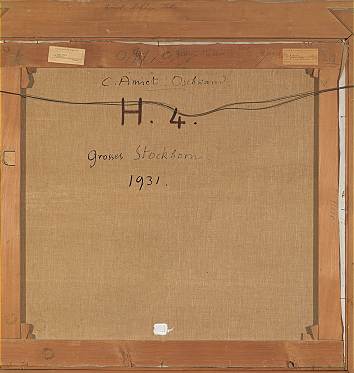 C. Amiet Oschwand
H. 4.
Grosses Stockhorn
1931.